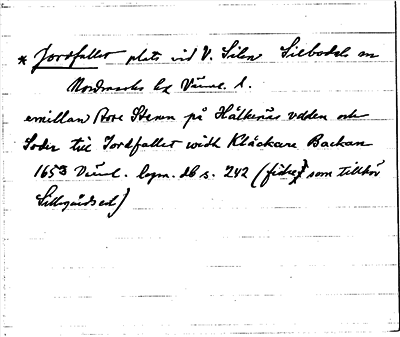 * Jordfallet plats vid V. Silen Silbodals sn
Nordmarks hd Värml. l.
emillan Store Stenen på Hålkenäs udden och
Söder till Jordfallet widh Kläckare Backan
1653 Värml. lagm. db s. 242 (fiske som tillhör
Sillegårdsed)